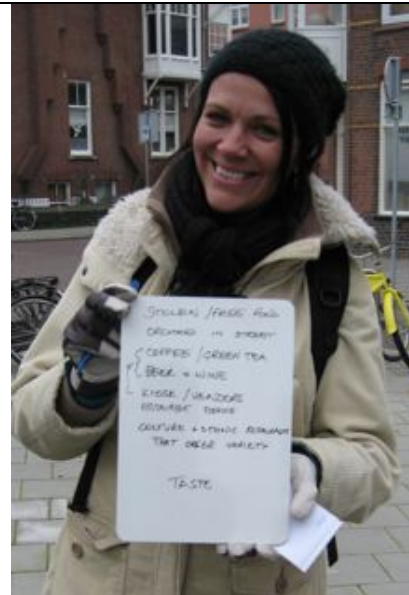 STOLEN / FREE FOOD
ORCHARD IN STREET
COFFEE / GREEN TEA
BEER + WINE
KIOSK / VENDORS
CULTURE + ETHNIC RESTAURANT
THAT OFFER VARIETY
TASTE